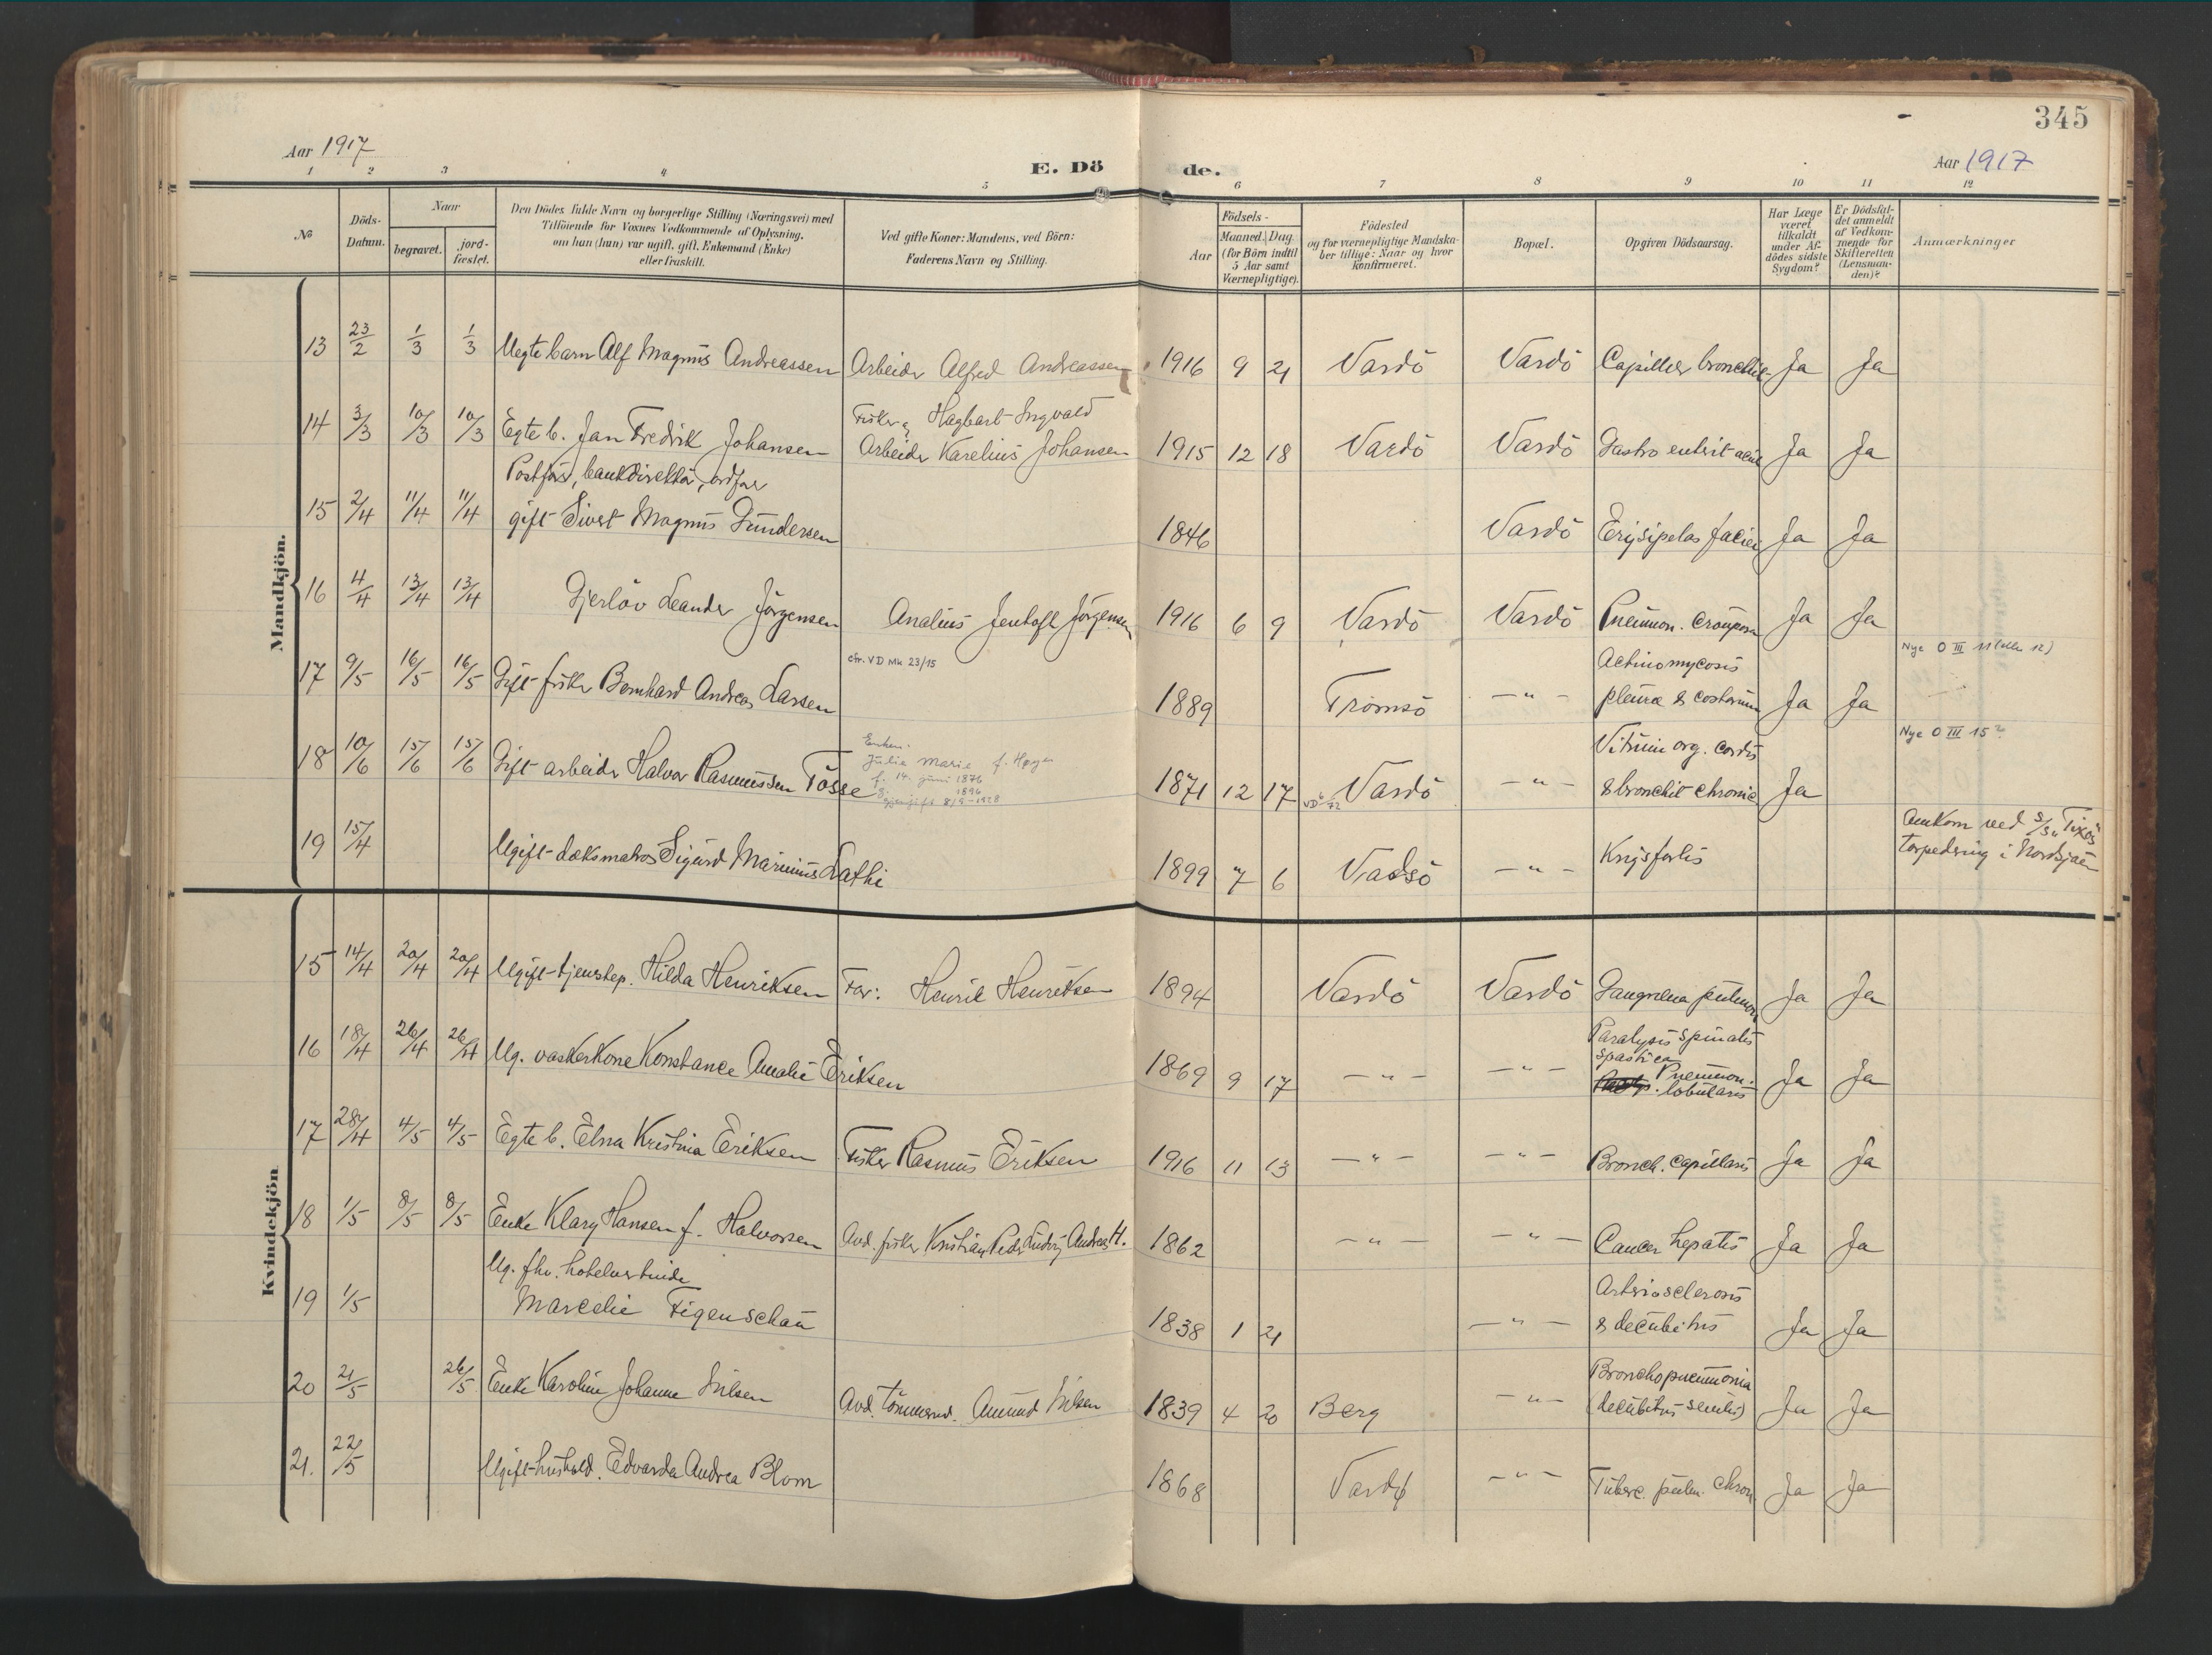 345
Aar 1917
E. Dö
de.
Aar 1917
1 2 3 4 5 6 7 8 9 10 11 12
№
Döds-
Datum.
Naar
begravet.
jord-
fæstet.
Den Dödes fulde Navn og borgerlige Stilling (Næringsvei) med
Tilföiende for Voxnes Vedkommende af Oplysning,
om han (hun) var ugift, gift, Enkemand (Enke)
eller fraskilt.
Ved gifte Koner: Mandens, ved Börn:
Faderens Navn og Stilling.
Födsels-
Aar
Maaned. Dag
(for Börn indtil
5 Aar samt
Værnepligtige).
Födested
og for værnepligtige Mandska-
ber tillige: Naar og hvor
konfirmeret.
Bopæl.
Opgiven Dödsaarsag.
Har Læge
været
tilkaldt
under Af-
dödes sidste
Sygdom?
Er Dödsfal-
det anmeldt
af Vedkom-
mende for
Skifteretten
(Lensman-
den)?
Anmærkninger
Mandkjön.
13 23/2 1/3 1/3 Uegte barn Alf Magnus Andreassen Arbeider Alfred Andreassen 1916 9 21 Vardö Vardö Capillær bronchit Ja Ja
Fisker Hagbart Ingvald
14 3/3 10/3 10/3 Egte b. Jan Fredrik Johansen Arbeider Karelius Johansen 1915 12 18 Vardö Vardö Gastro enterit acut Ja Ja
Postfør, bankdirektør, ordfør
15 2/4 11/4 11/4 gift Sivert Magnus Gundersen 1846 Vardö Erysipelas faciei Ja Ja
16 4/4 13/4 13/4 Gjerløv Leander Jörgensen Analius Jentoft Jörgensen 1916 6 9 Vardö Vardö Pneumon. crouposa Ja Ja
cfr. VD Mk 23/15
Actinomycosis
Nye O III 11 (eller 12)
17 9/5 16/5 16/5 Gift fisker Bernhard Andreas Larsen 1889 Tromsö — " — pleuræ & costarum Ja Ja
Enken:
Julie Marie f. Høyer
f. 14. juni 1876
g. 1896
gjengift 8/9-1928
Vitium org. cordis
Nye O III 15?
18 10/6 15/6 15/6 Gift arbeider Halvor Rasmussen Tosse 1871 12 17 VD 72 Vardö — " — & bronchit chronic Ja
19 15/4 Ugift dæksmatros Sigurd Marinius Lathi 1899 7 6 Vadsö — " — Krigsforlis
Omkom ved S/S
torpedering i Nordsjøen
Kvindekjön
15 14/4 20/4 20/4 Ugift tjenstep. Hilda Henriksen Far: Henrik Henriksen 1894 Vardö Vardö Gangræna pulmon Ja Ja
Paralysis spinalis
spastica
16 18/4 26/4 26/4 Ug. vaskerkone Konstance Amalie Eriksen 1869 9 17 — " — — " — Pneumon. lobularis Ja Ja
17 28/4 4/5 4/5 Egte b. Elna Kristina Eriksen Fisker Rasmus Eriksen 1916 11 13 — " — — " — Bronch. capillaris Ja Ja
18 1/5 8/5 8/5 Enke Klary Hansen f. Halvorsen Avd. fisker Kristian Peder Ludvig Andreas H. 1862 — " — — " — Cancer hepatis Ja Ja
Ug. fhv. hotelvertinde
Arteriosclerosis
19 1/5 Marcelie Figenschau 1838 1 21 — " — & decubitus Ja Ja
Bronchopneumonia
20 21/5 26/5 Enke Karoline Johanne Nilsen Avd. tömmerm. Amund Nilsen 1839 4 20 Berg — " — (decubitus senilis) Ja Ja
21. 22/5 Ugift hushold. Edvarda Andrea Blom 1868 Vardø — " — Tuberc. pulm. chron. Ja Ja